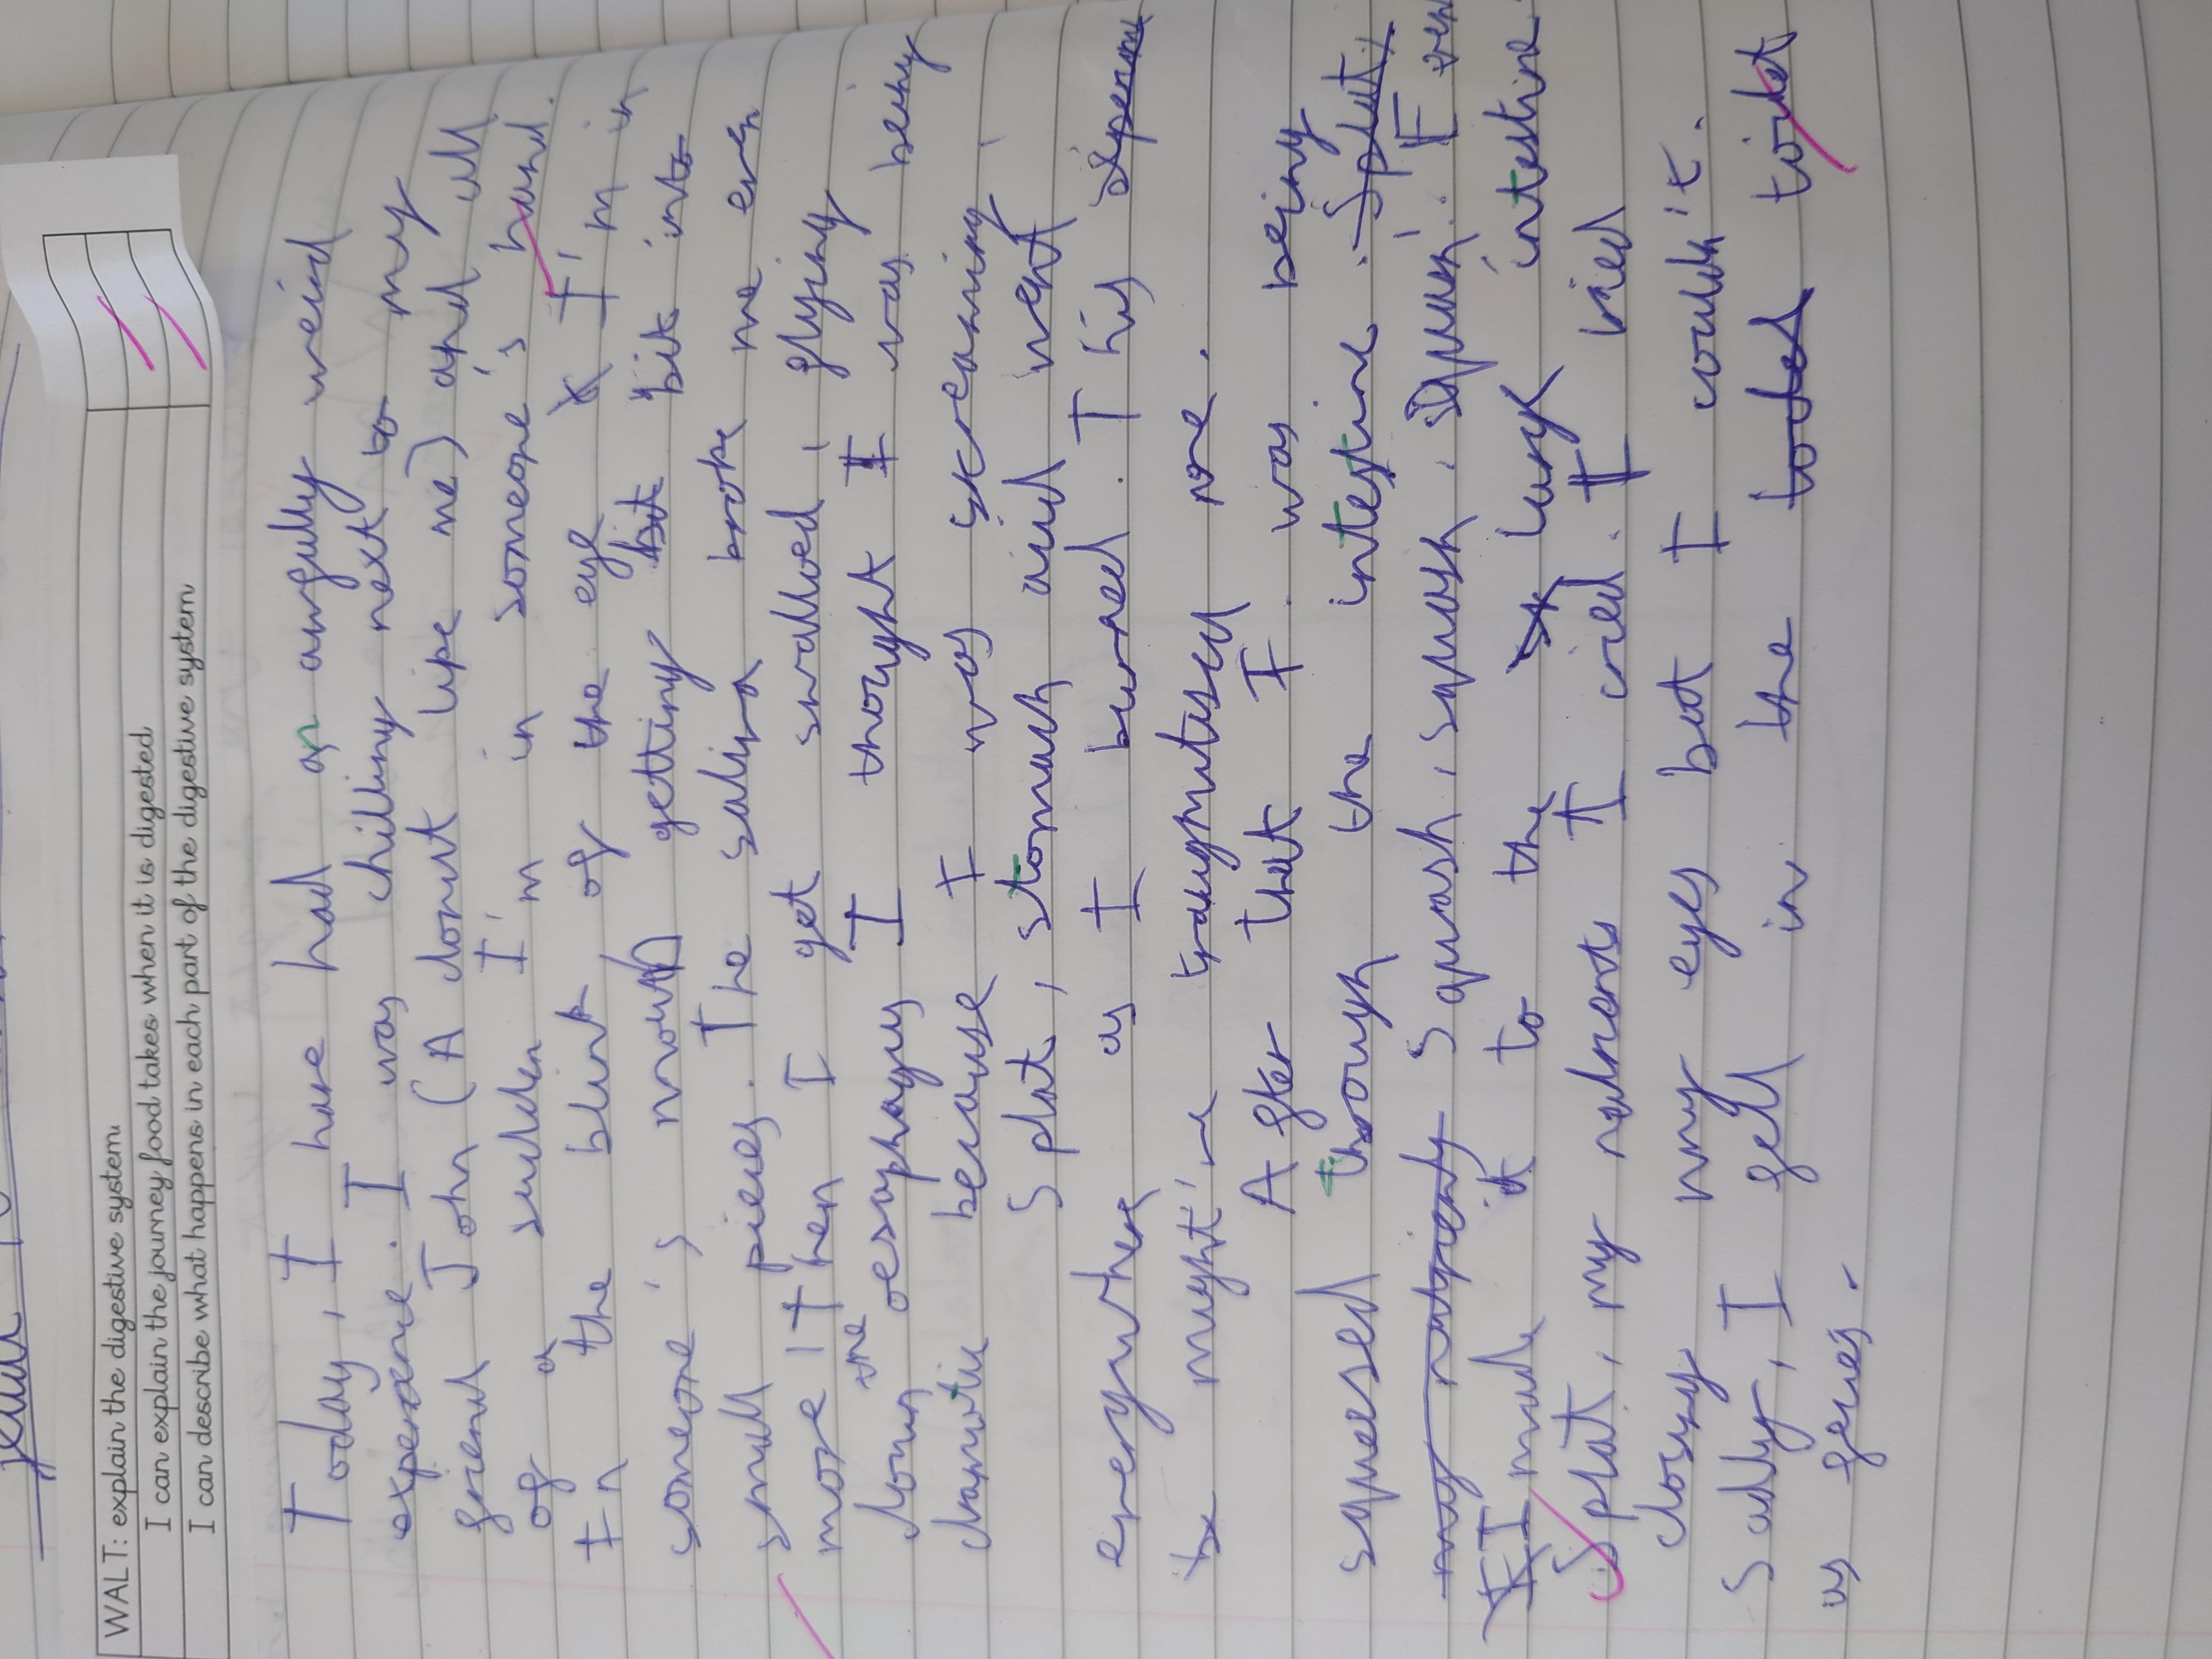 WALT: explain the digestive system
I can explain the journey food takes when it is digested
I can describe what happens in each part of the digestive system
Today, I have had an awfully weird
experience. I was chilling next to my
friend John (A donut like me) and all
of a sudden I'm in someone's hand.
In the blink of the eye I'm in
someone's mouth getting bit into
small pieces. The saliva broke me even
more. Then I get swallowed, flying
down the oesophagus I thought I was being
dramatic because I was screaming,
Splat, stomach acid went
everywhere as I burned. This
might've traumatised me.
After that I was being
squeesed through the intestine.
Squash, squash, squash, squash. Even
I made it to the large intestine
Splat, my nutrients I cried. I tried
closing my eyes but I couldn't.
Sadly, I fell in the toilet
as feces.